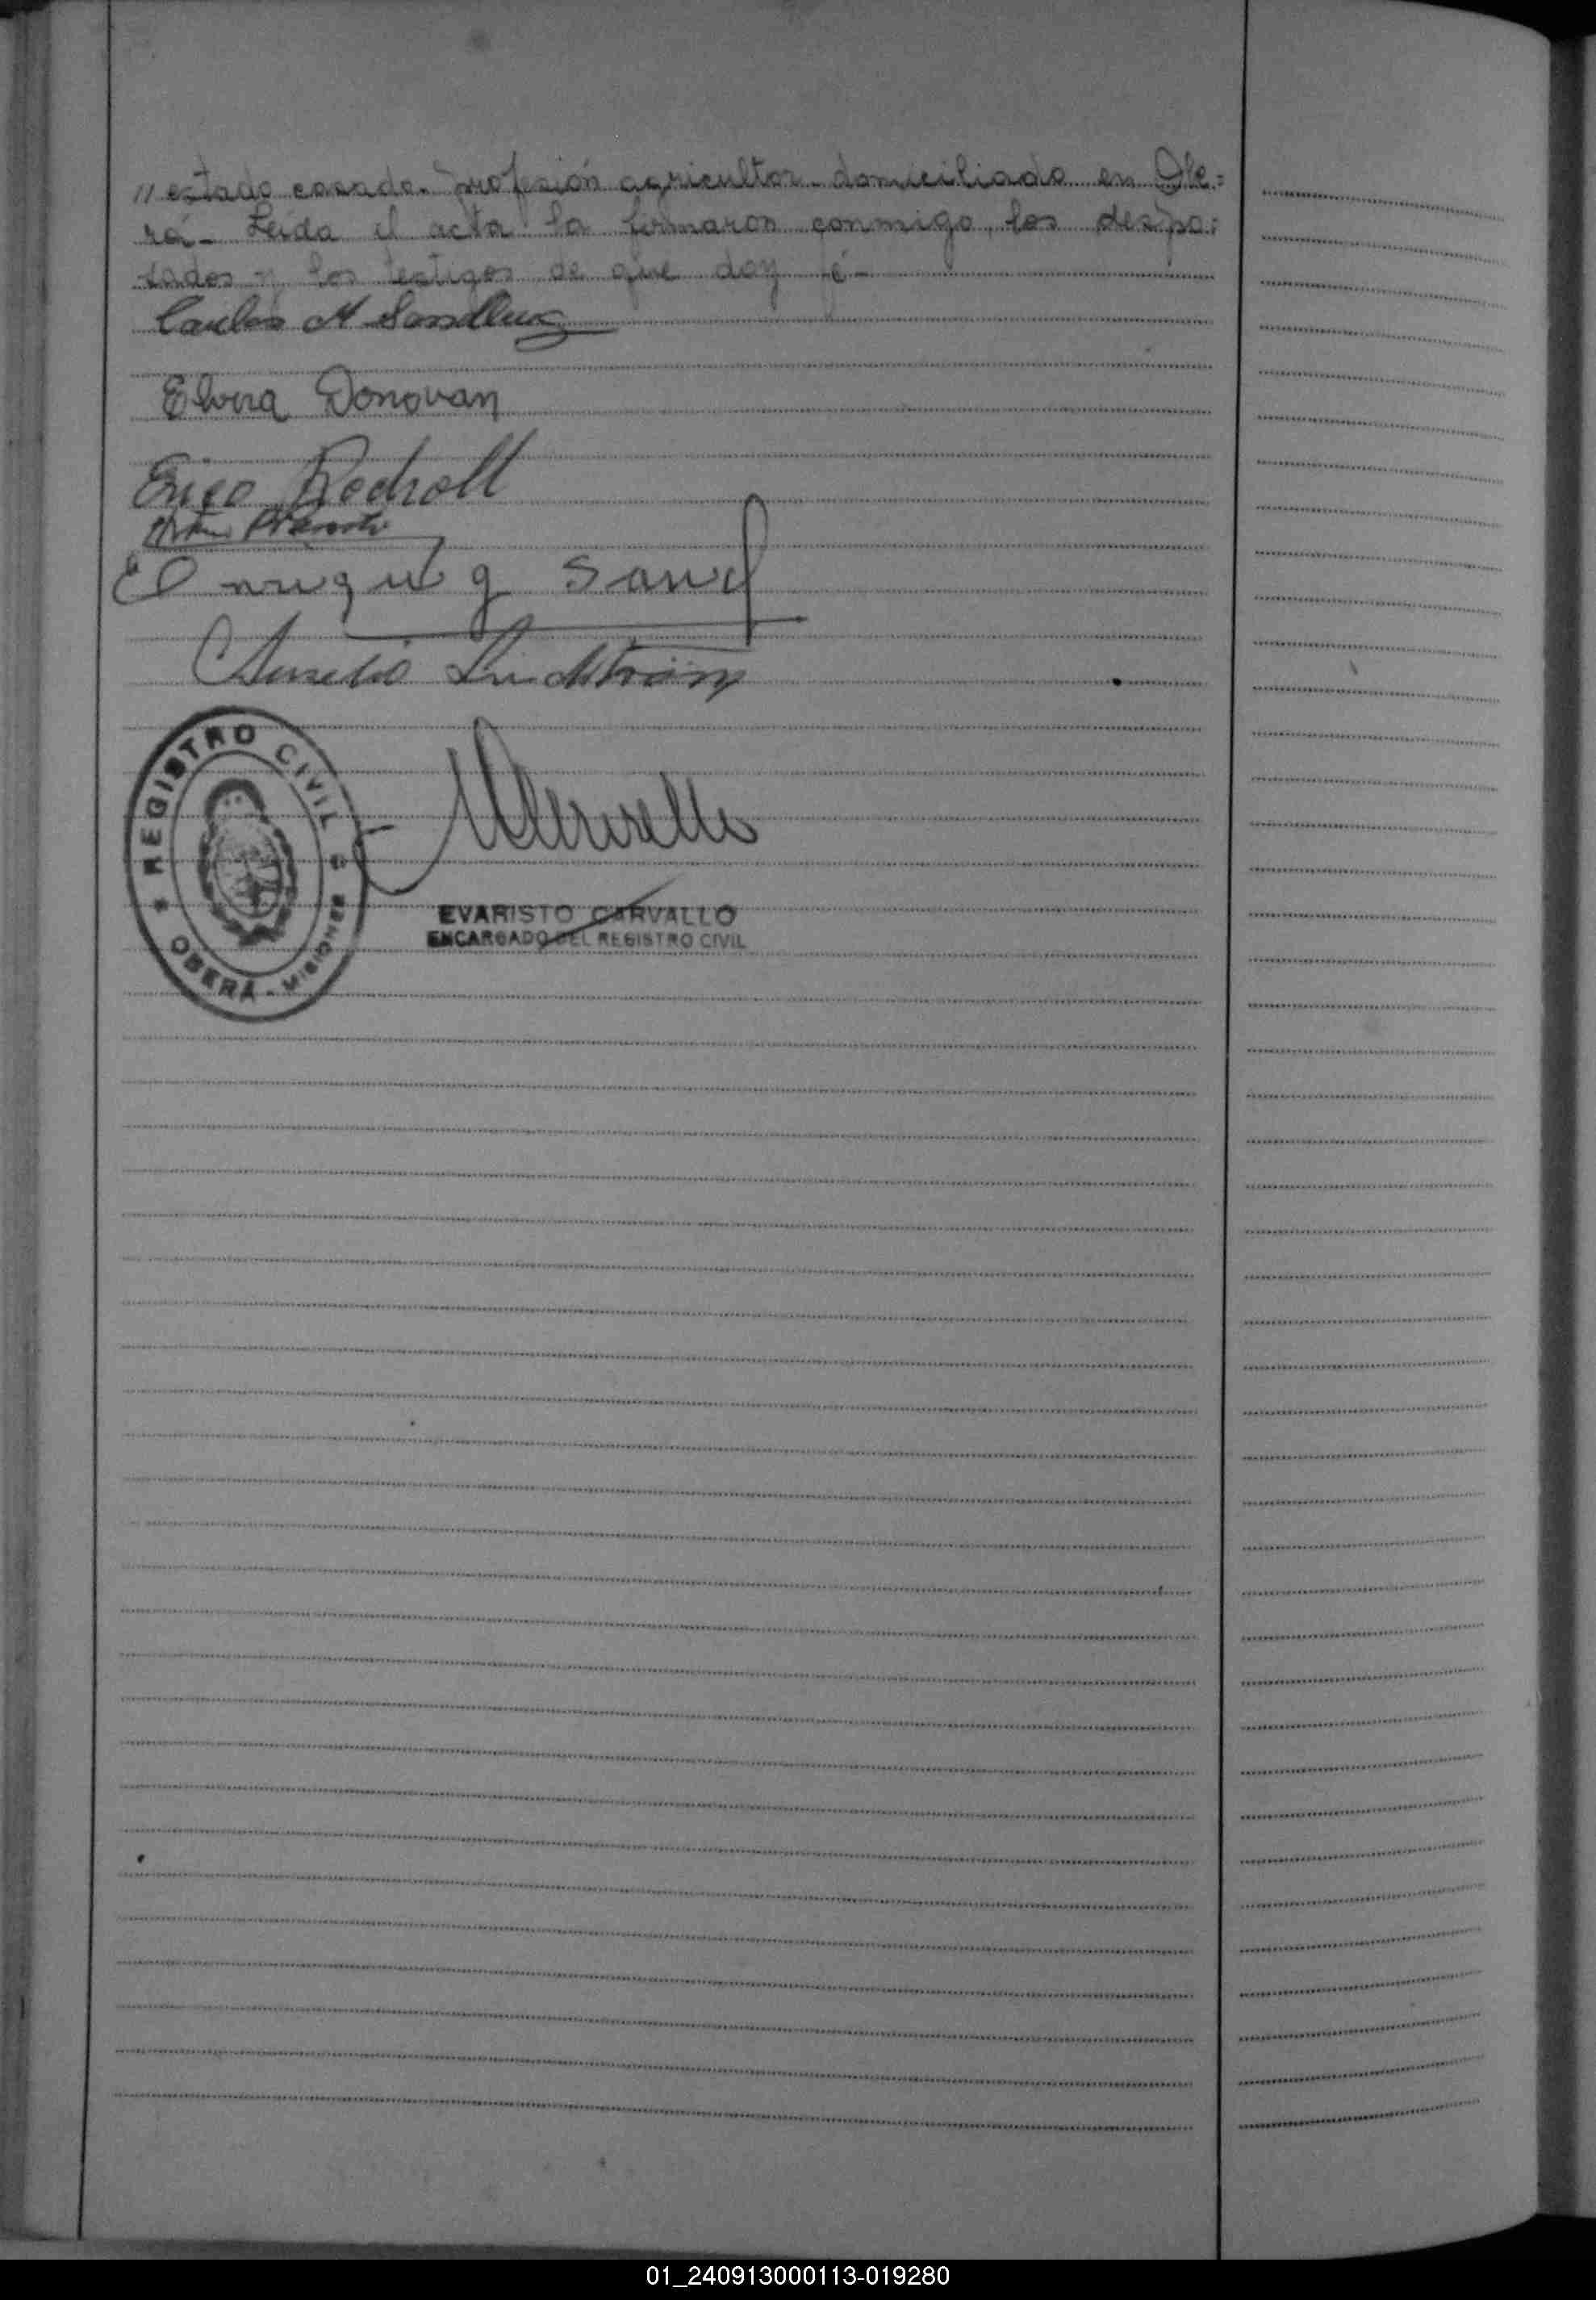 // estado casado. profesión agricultor. domiciliado en Obe=
rá. Leída el acta la firmaron conmigo, los despo=
sados y los testigos de que doy fé.
Carlos A
Elvira Donovan
Erico
Enrique g Sand
Aurelio Lindström
REGISTRO CIVIL
OBERÁ - MISIONES
EVARISTO CARVALLO
ENCARGADO DEL REGISTRO CIVIL
01_240913000113-019280